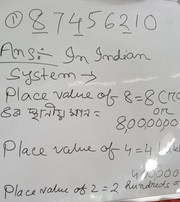 ① 87456210
Ans:- In Indian
System →
Place value of 8 = 8 Cro
৪এর স্থানীয় মান = or
8,00,00,00
Place value of 4 = 4 La
4,00,000
Place value of 2 = 2 hundreds or